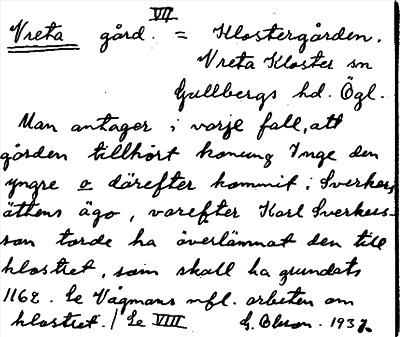 VII
Vreta gård. = Klostergården.
Vreta Kloster sn
Gullbergs hd. Ögl.
Man antager i varje fall, att
gården tillhört konung Inge den
yngre o därefter kommit i Sverkers
ättens ägo, varefter Karl Sverkers-
son torde ha överlämnat den till
klostret, som skall ha grundats
1162. Se Vågmans nfl. arbeten om
klostret. / Se VIII G. Olsson. 1937.